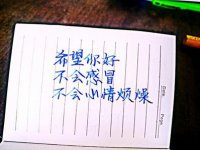 希望你好
不会感冒
不会心情烦燥
Date.
Page.